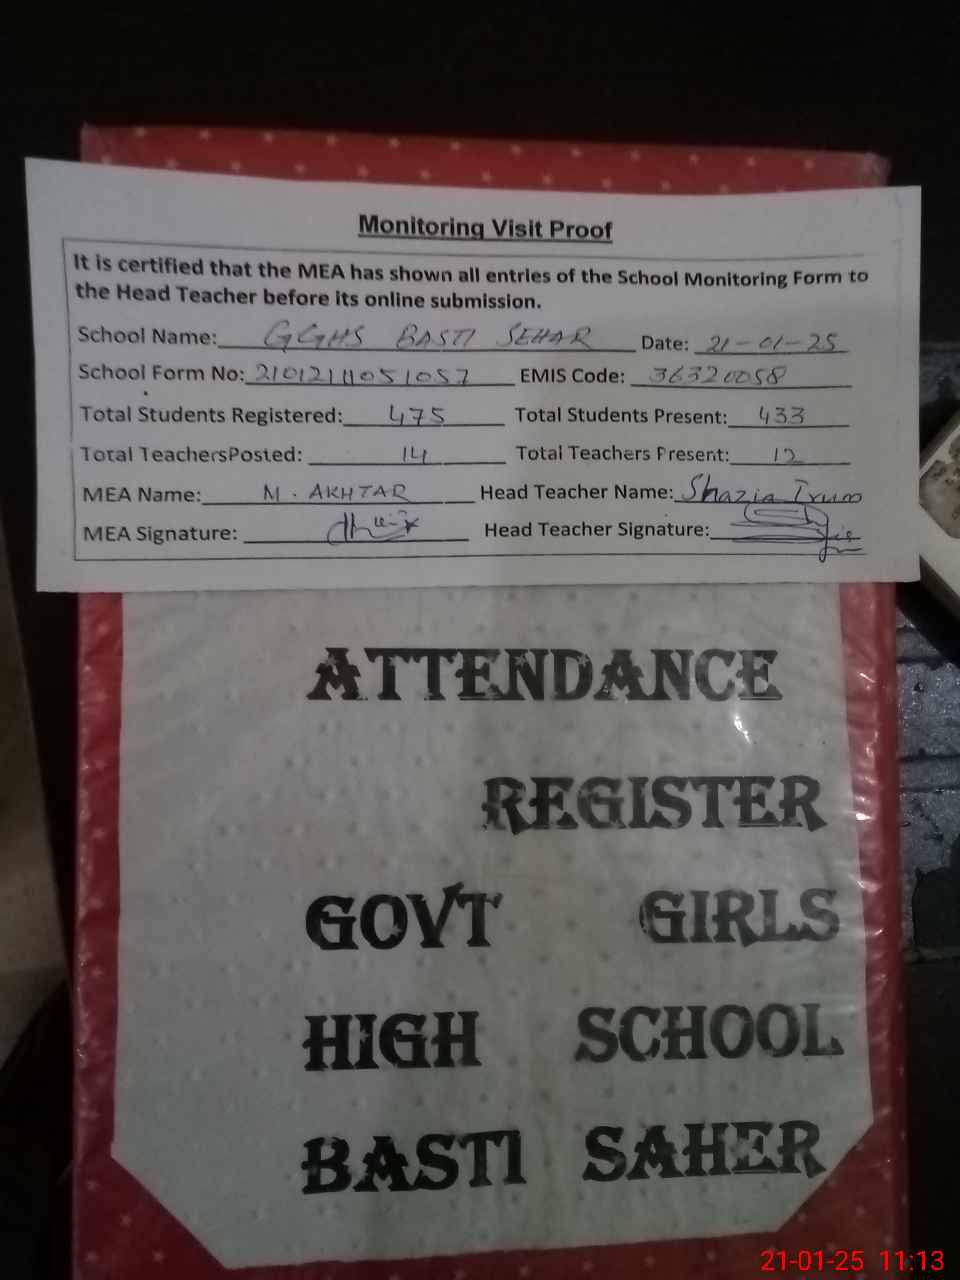 Monitoring Visit Proof
It is certified that the MEA has shown all entries of the School Monitoring Form to
the Head Teacher before its online submission.
School Name: GGHS BASTI SEHAR Date: 21-01-25
School Form No: 2101211051057 EMIS Code: 36320058
Total Students Registered: 475 Total Students Present: 433
Total TeachersPosted: 14 Total Teachers Present: 12
MEA Name: M. AKHTAR Head Teacher Name: Shazia Irum
MEA Signature: Head Teacher Signature:
ATTENDANCE
REGISTER
GOVT GIRLS
HIGH SCHOOL
BASTI SAHER
21-01-25 11:13